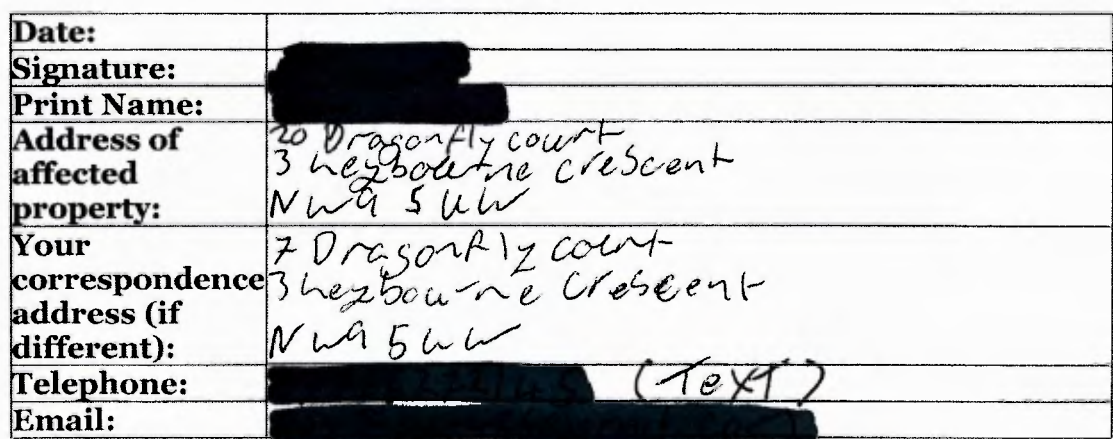 Date:
Signature:
Print Name:
Address of affected property:
20 Dragonfly court
3 heybourne crescent
NW9 5UW
Your correspondence address (if different):
7 Dragonfly court
3 heybourne Crescent
NW9 5UW
Telephone: (Text)
Email: